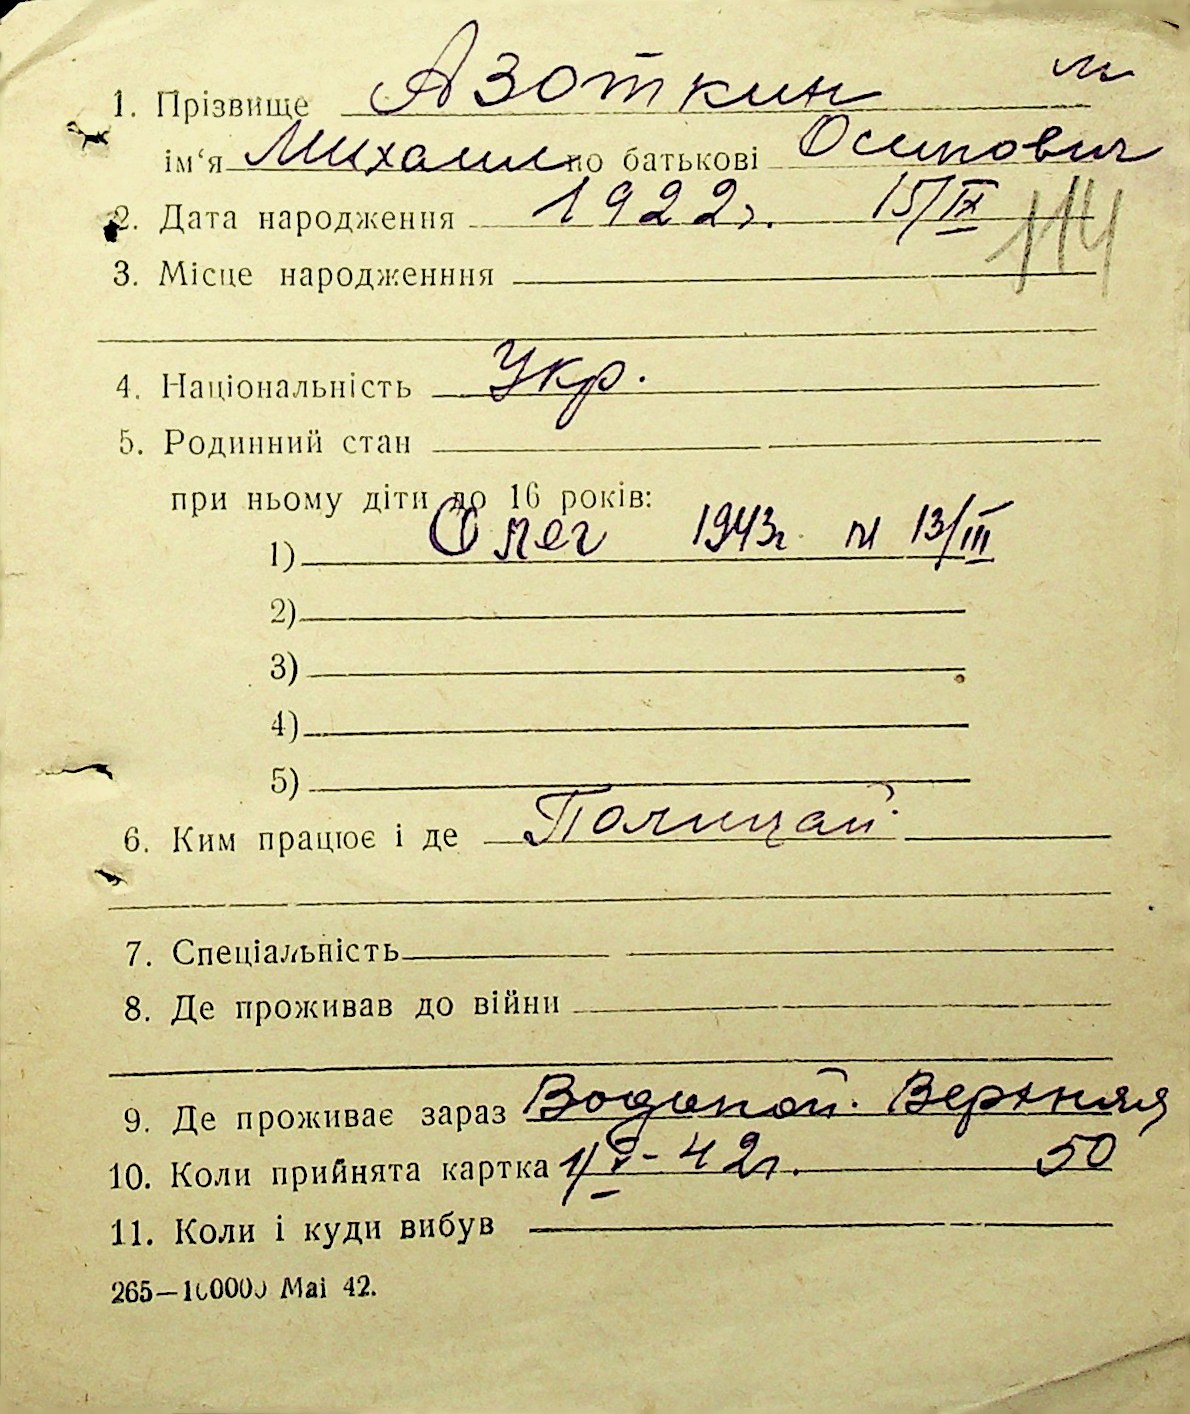 1. Прізвище Азоткин м
ім‘я Михаил по батькові Осипович
2. Дата народження 1922г. 15/IX
114
3. Місце народженння
4. Національність Укр.
5. Родинний стан
при ньому діти до 16 років:
1) Олег 1943г. м 13/III
2)
3)
4)
5)
6. Ким працює і де Полицай
7. Спеціальність
8. Де проживав до війни
9. Де проживає зараз Водопой. Верхняя
10. Коли прийнята картка 1/X-42г. 50
11. Коли і куди вибув
265—100000 Mai 42.